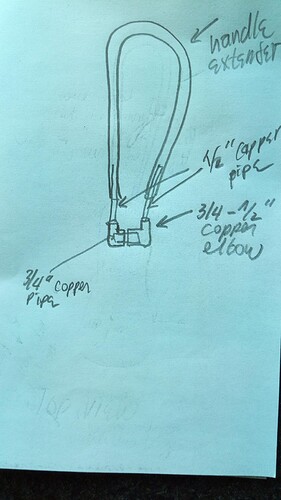 handle
extender
1/2" copper
pipe
3/4-1/2"
copper
elbow
3/4" copper
pipe
Top view